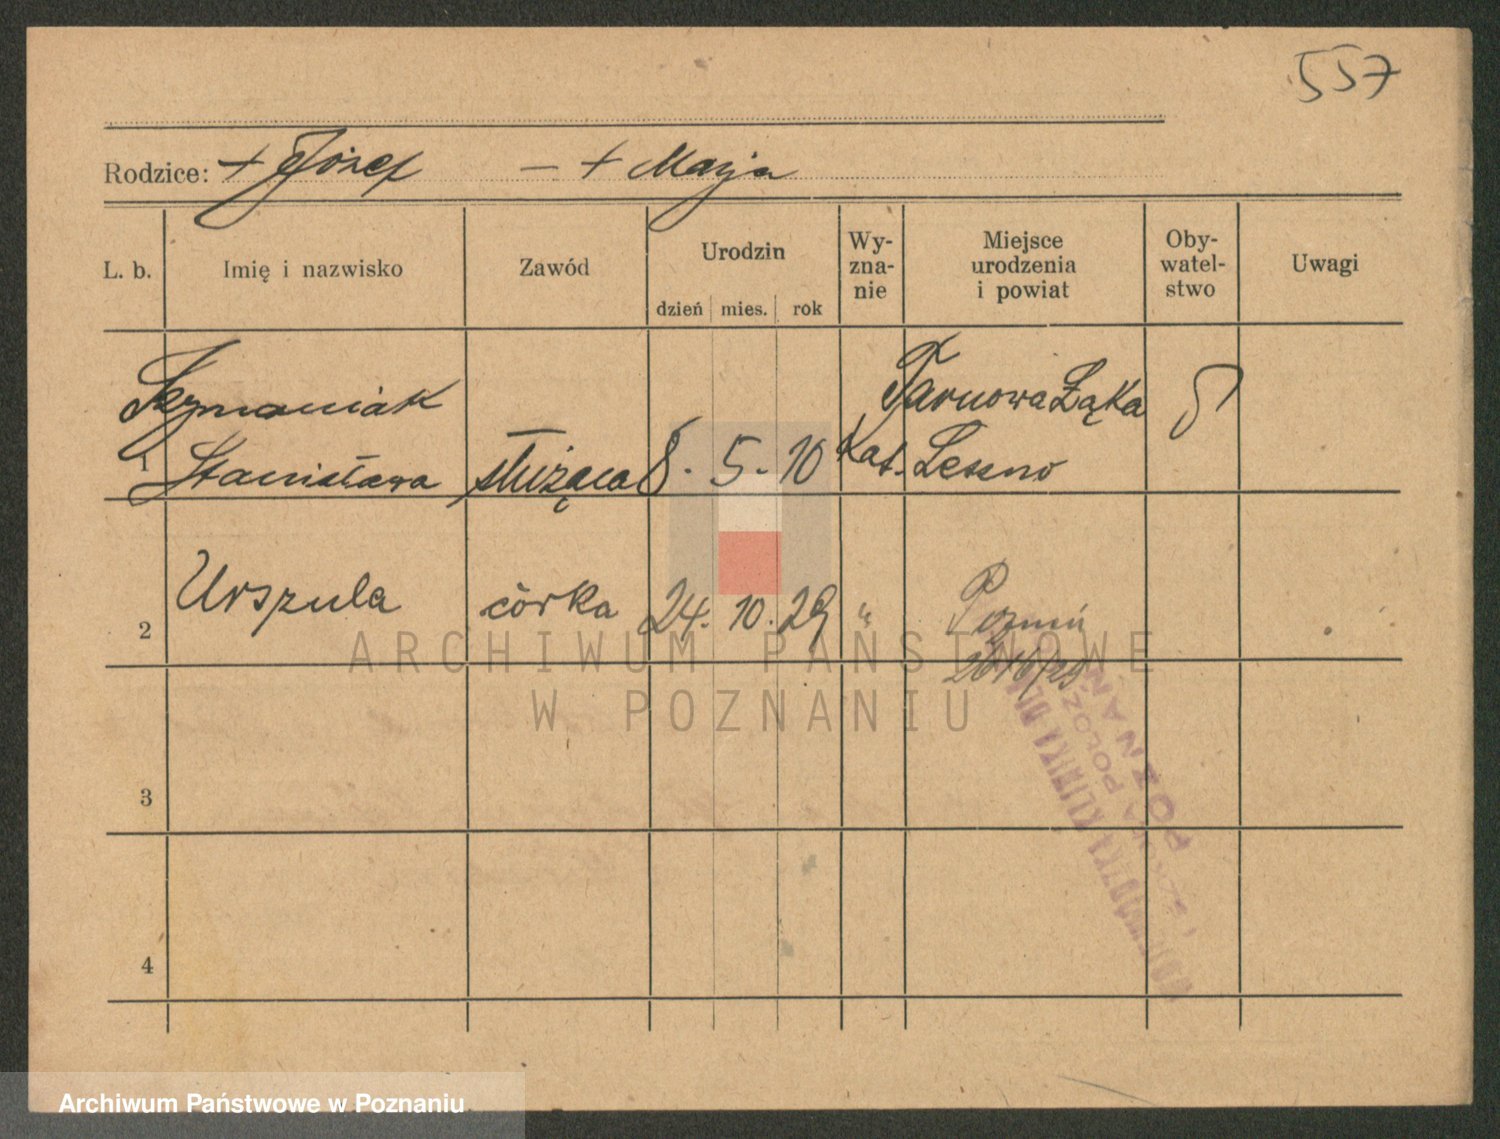 557
Rodzice: + Józef — + Marja
L. b. Imię i nazwisko Zawód Urodzin dzień mies. rok Wy-zna-nie Miejsce urodzenia i powiat Oby-watel-stwo Uwagi
Szymaniak Tarnowa Łąka
1 Stanisława służąca 8. 5. 10 Kat. Leszno
2 Urszula córka 24. 10. 29 " Poznań
2616/29
3
4
POZNAŃ
ARCHIWUM PAŃSTWOWE
W POZNANIU
Archiwum Państwowe w Poznaniu